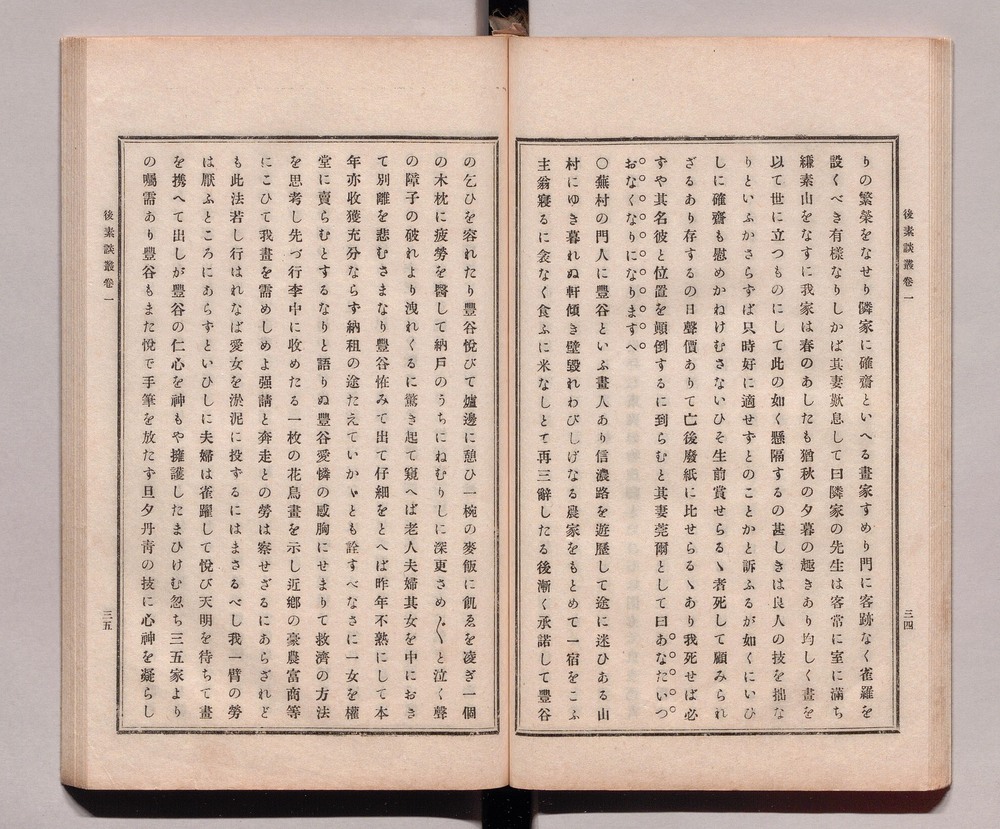 後素談叢卷一
三四
りの繁榮をなせり隣家に確齋といへる畫家すめり門に客跡なく雀羅を
設くべき有樣なりしかば其妻歎息して曰隣家の先生は客常に室に滿ち
縑素山をなすに我家は春のあしたも猶秋の夕暮の趣きあり均しく畫を
以て世に立つものにして此の如く懸隔するの甚しきは良人の技を拙な
りといふかさらずば只時好に適せずとのことかと訴ふるが如くにいひ
しに確齋も慰めかねけむさないひそ生前賞せらるヽ者死して顧みられ
ざるあり存するの日聲價ありて亡後廢紙に比せらるヽあり我死せば必
ずや其名彼と位置を顛倒するに到らむと其妻莞爾として曰あなたいつ
おなくなりになりますへ
○蕪村の門人に豐谷といふ畫人あり信濃路を遊歷して途に迷ひある山
村にゆき暮れぬ軒傾き壁毀れわびしげなる農家をもとめて一宿をこふ
主翁寢るに衾なく食ふに米なしとて再三辭したる後漸く承諾して豐谷
の乞ひを容れたり豐谷悅びて爐邊に憩ひ一椀の麥飯に飢ゑを凌ぎ一個
の木枕に疲勞を醫して納戶のうちにねむりしに深更さめ〲と泣く聲
の障子の破れより洩れくるに驚き起て窺へば老人夫婦其女を中におき
て別離を悲むさまなり豐谷恠みて出て仔細をとへば昨年不熟にして本
年亦收獲充分ならす納租の途たえていかヽとも詮すべなさに一女を權
堂に賣らむとするなりと語りぬ豐谷愛憐の感胸にせまりて救濟の方法
を思考し先づ行李中に收めたる一枚の花鳥畫を示し近鄕の豪農富商等
にこひて我畫を需めしめよ强請と奔走との勞は察せざるにあらざれど
も此法若し行はれなば愛女を淤泥に投するにはまさるべし我一臂の勞
は厭ふところにあらずといひしに夫婦は雀躍して悅び天明を待ちて畫
を携へて出しが豐谷の仁心を神もや擁護したまひけむ忽ち三五家より
の囑需あり豐谷もまた悅で手筆を放たす旦夕丹靑の技に心神を凝らし
後素談叢卷一
三五